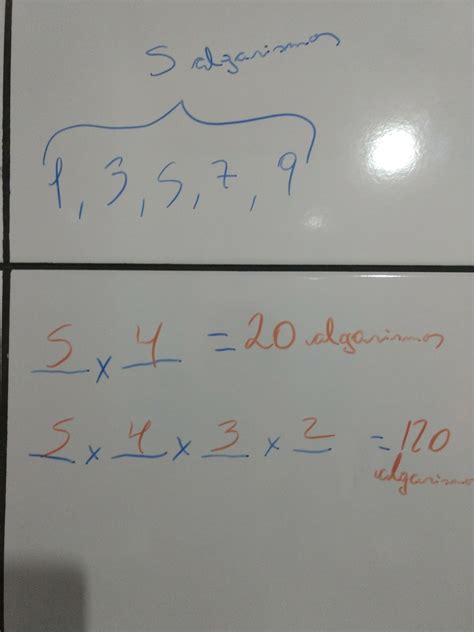 5 algarismos
1, 3, 5, 7, 9
5 x 4 = 20 algarismos
5 x 4 x 3 x 2 = 120
algarismos